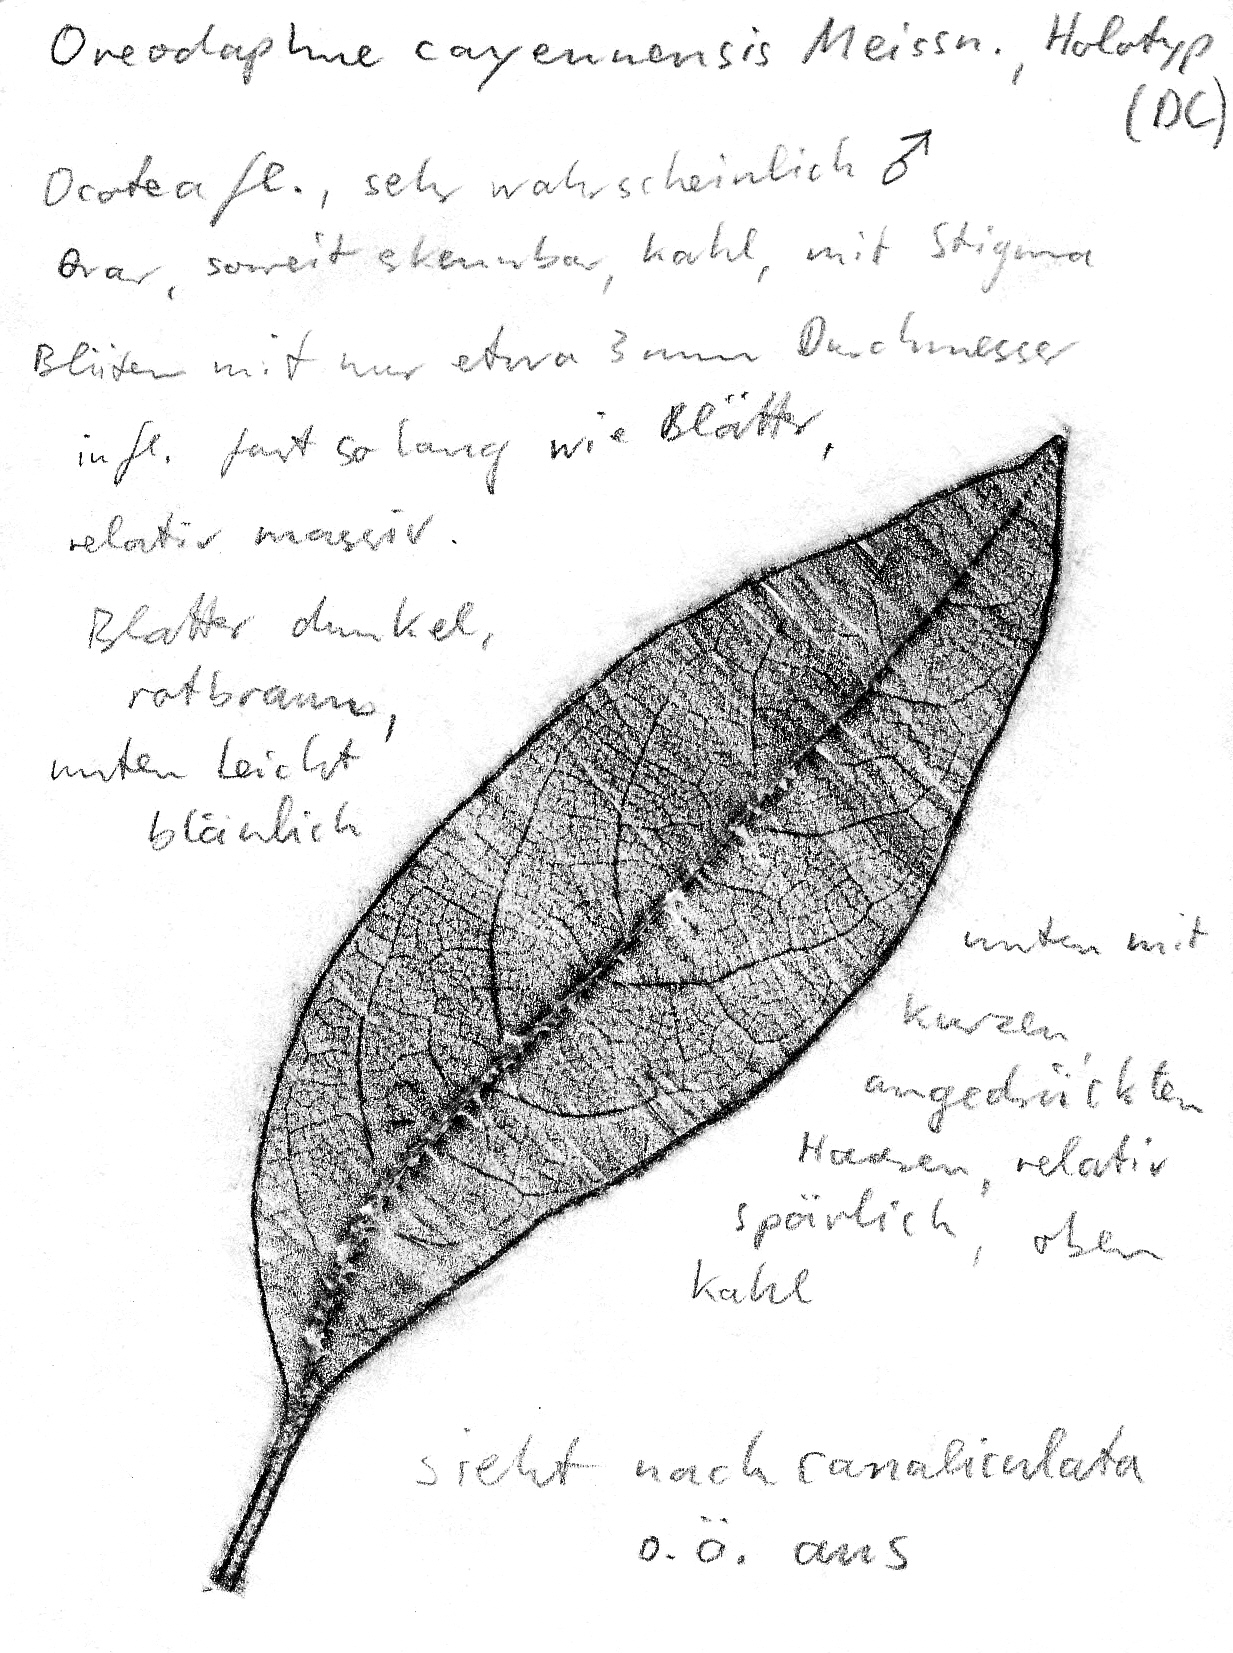 Oreodaphne cayennensis Meissn., Holotyp
(DC)
Ocotea fl., sehr wahrscheinlich ♂
Ovar, soweit erkennbar, kahl, mit Stigma
Blüten mit nur etwa 3 mm Durchmesser
infl. fast so lang wie Blätter,
relativ massiv.
Blätter dunkel,
rotbraun,
unten leicht
bläulich
unten mit
kurzen,
angedrückten
Haaren, relativ
spärlich, oben
kahl
sieht nach canaliculata
o.ä. aus